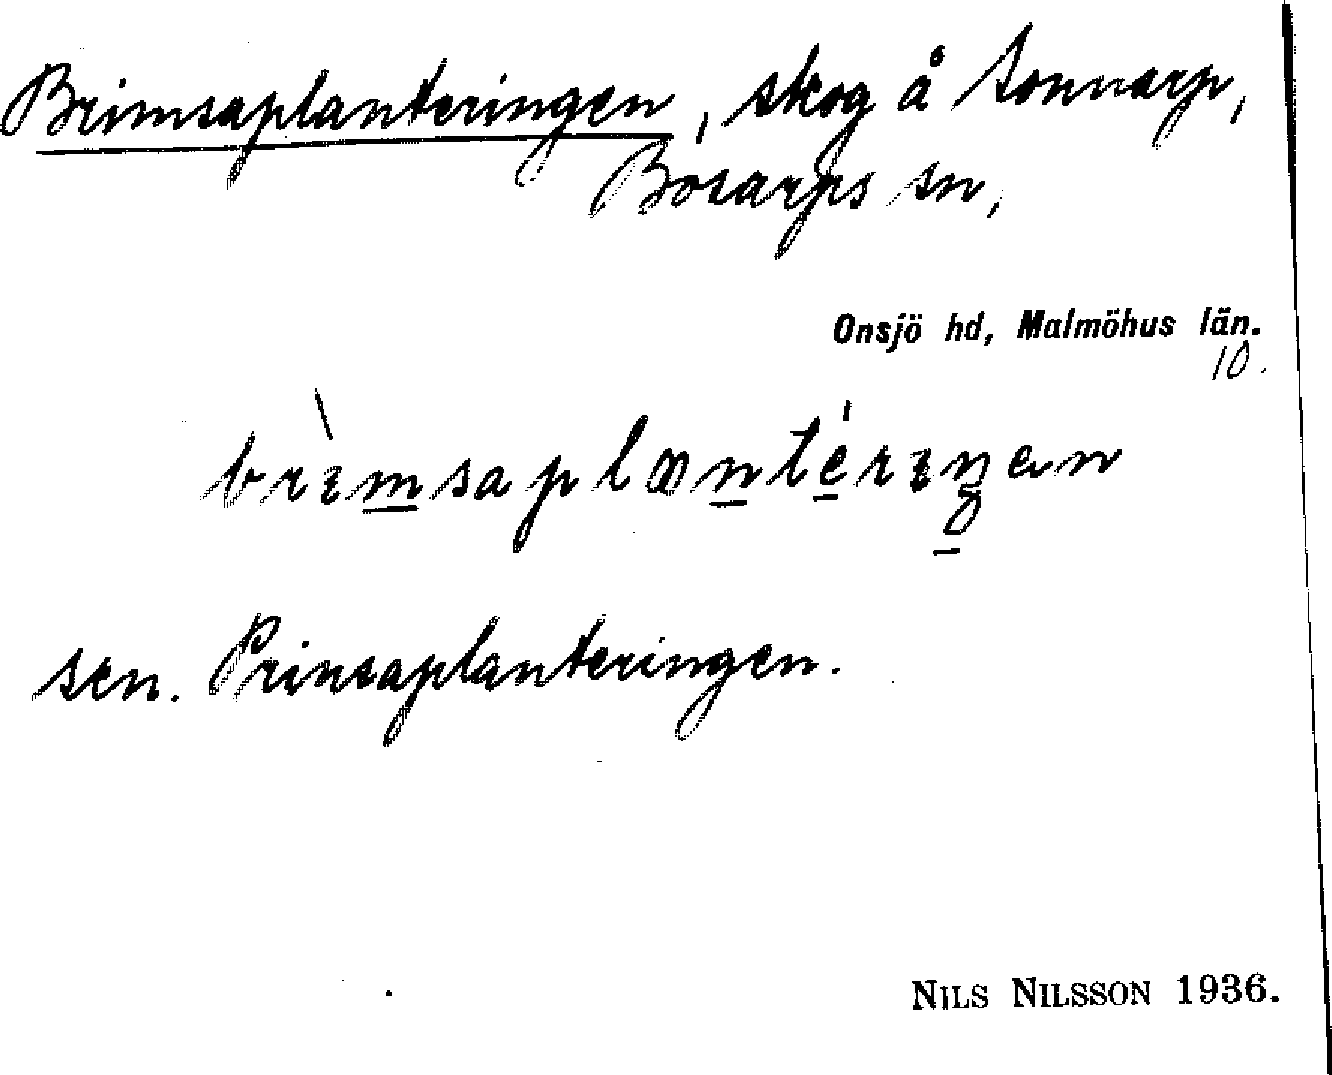 Brimsaplanteringen, skog å Sonnarp,
Bosarps sn,
Onsjö hd, Malmöhus län.
10.
sen. Prinsaplanteringen.
NILS NILSSON 1936.